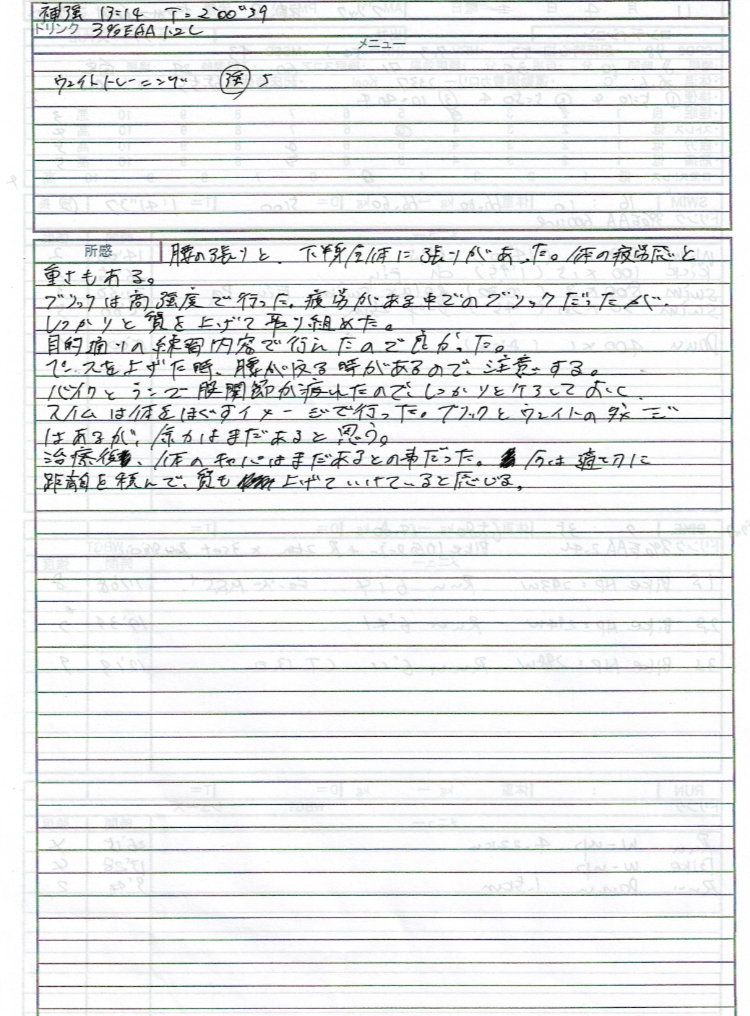 補強 17=14 T=2°00"39
ドリンク 3%EAA 1.2L
メニュー
ウェイトトレーニング 強 5
所感 腰の張りと、下半身全体に張りがあった。体の疲労感と
重さもある。
ブリックは高強度で行った。疲労がある中でのブリックだったが、
しっかりと質を上げて取り組めた。
目的通りの練習内容で行えたので良かった。
ペースを上げた時、腰が反る時があるので、注意する。
バイクとランで股関節が疲れたので、しっかりとケアしておく。
スイムは体をほぐすイメージで行った。ブリックとウェイトのダメージ
はあるが、余力はまだあると思う。
治療後、体のキャパはまだあるとの事だった。今は適切に
距離を積んで、質も上げていけていると感じる。